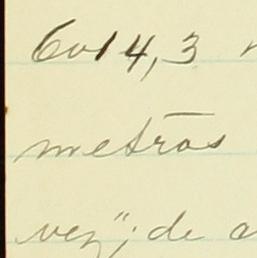 6014,3
metros
vez"; de a